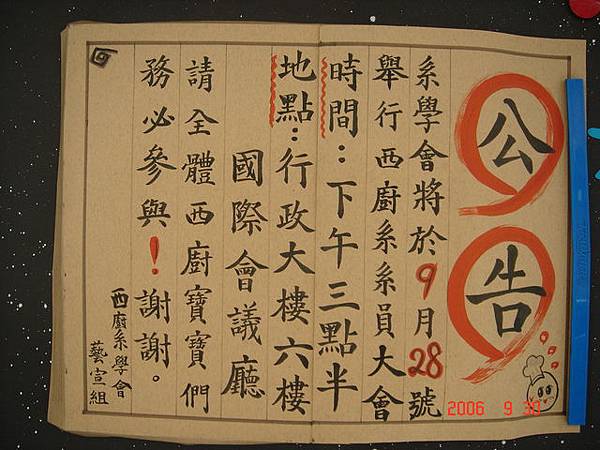 公告
系學會將於9月28號
舉行西廚系系員大會
時間：下午三點半
地點：行政大樓六樓
國際會議廳
請全體西廚寶寶們
務必參與！謝謝。
西廚系學會
藝宣組
2006 9 30